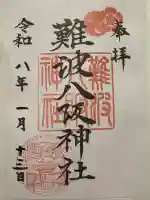 奉拝
難波八阪神社
令和八年一月十三日
難波
神社